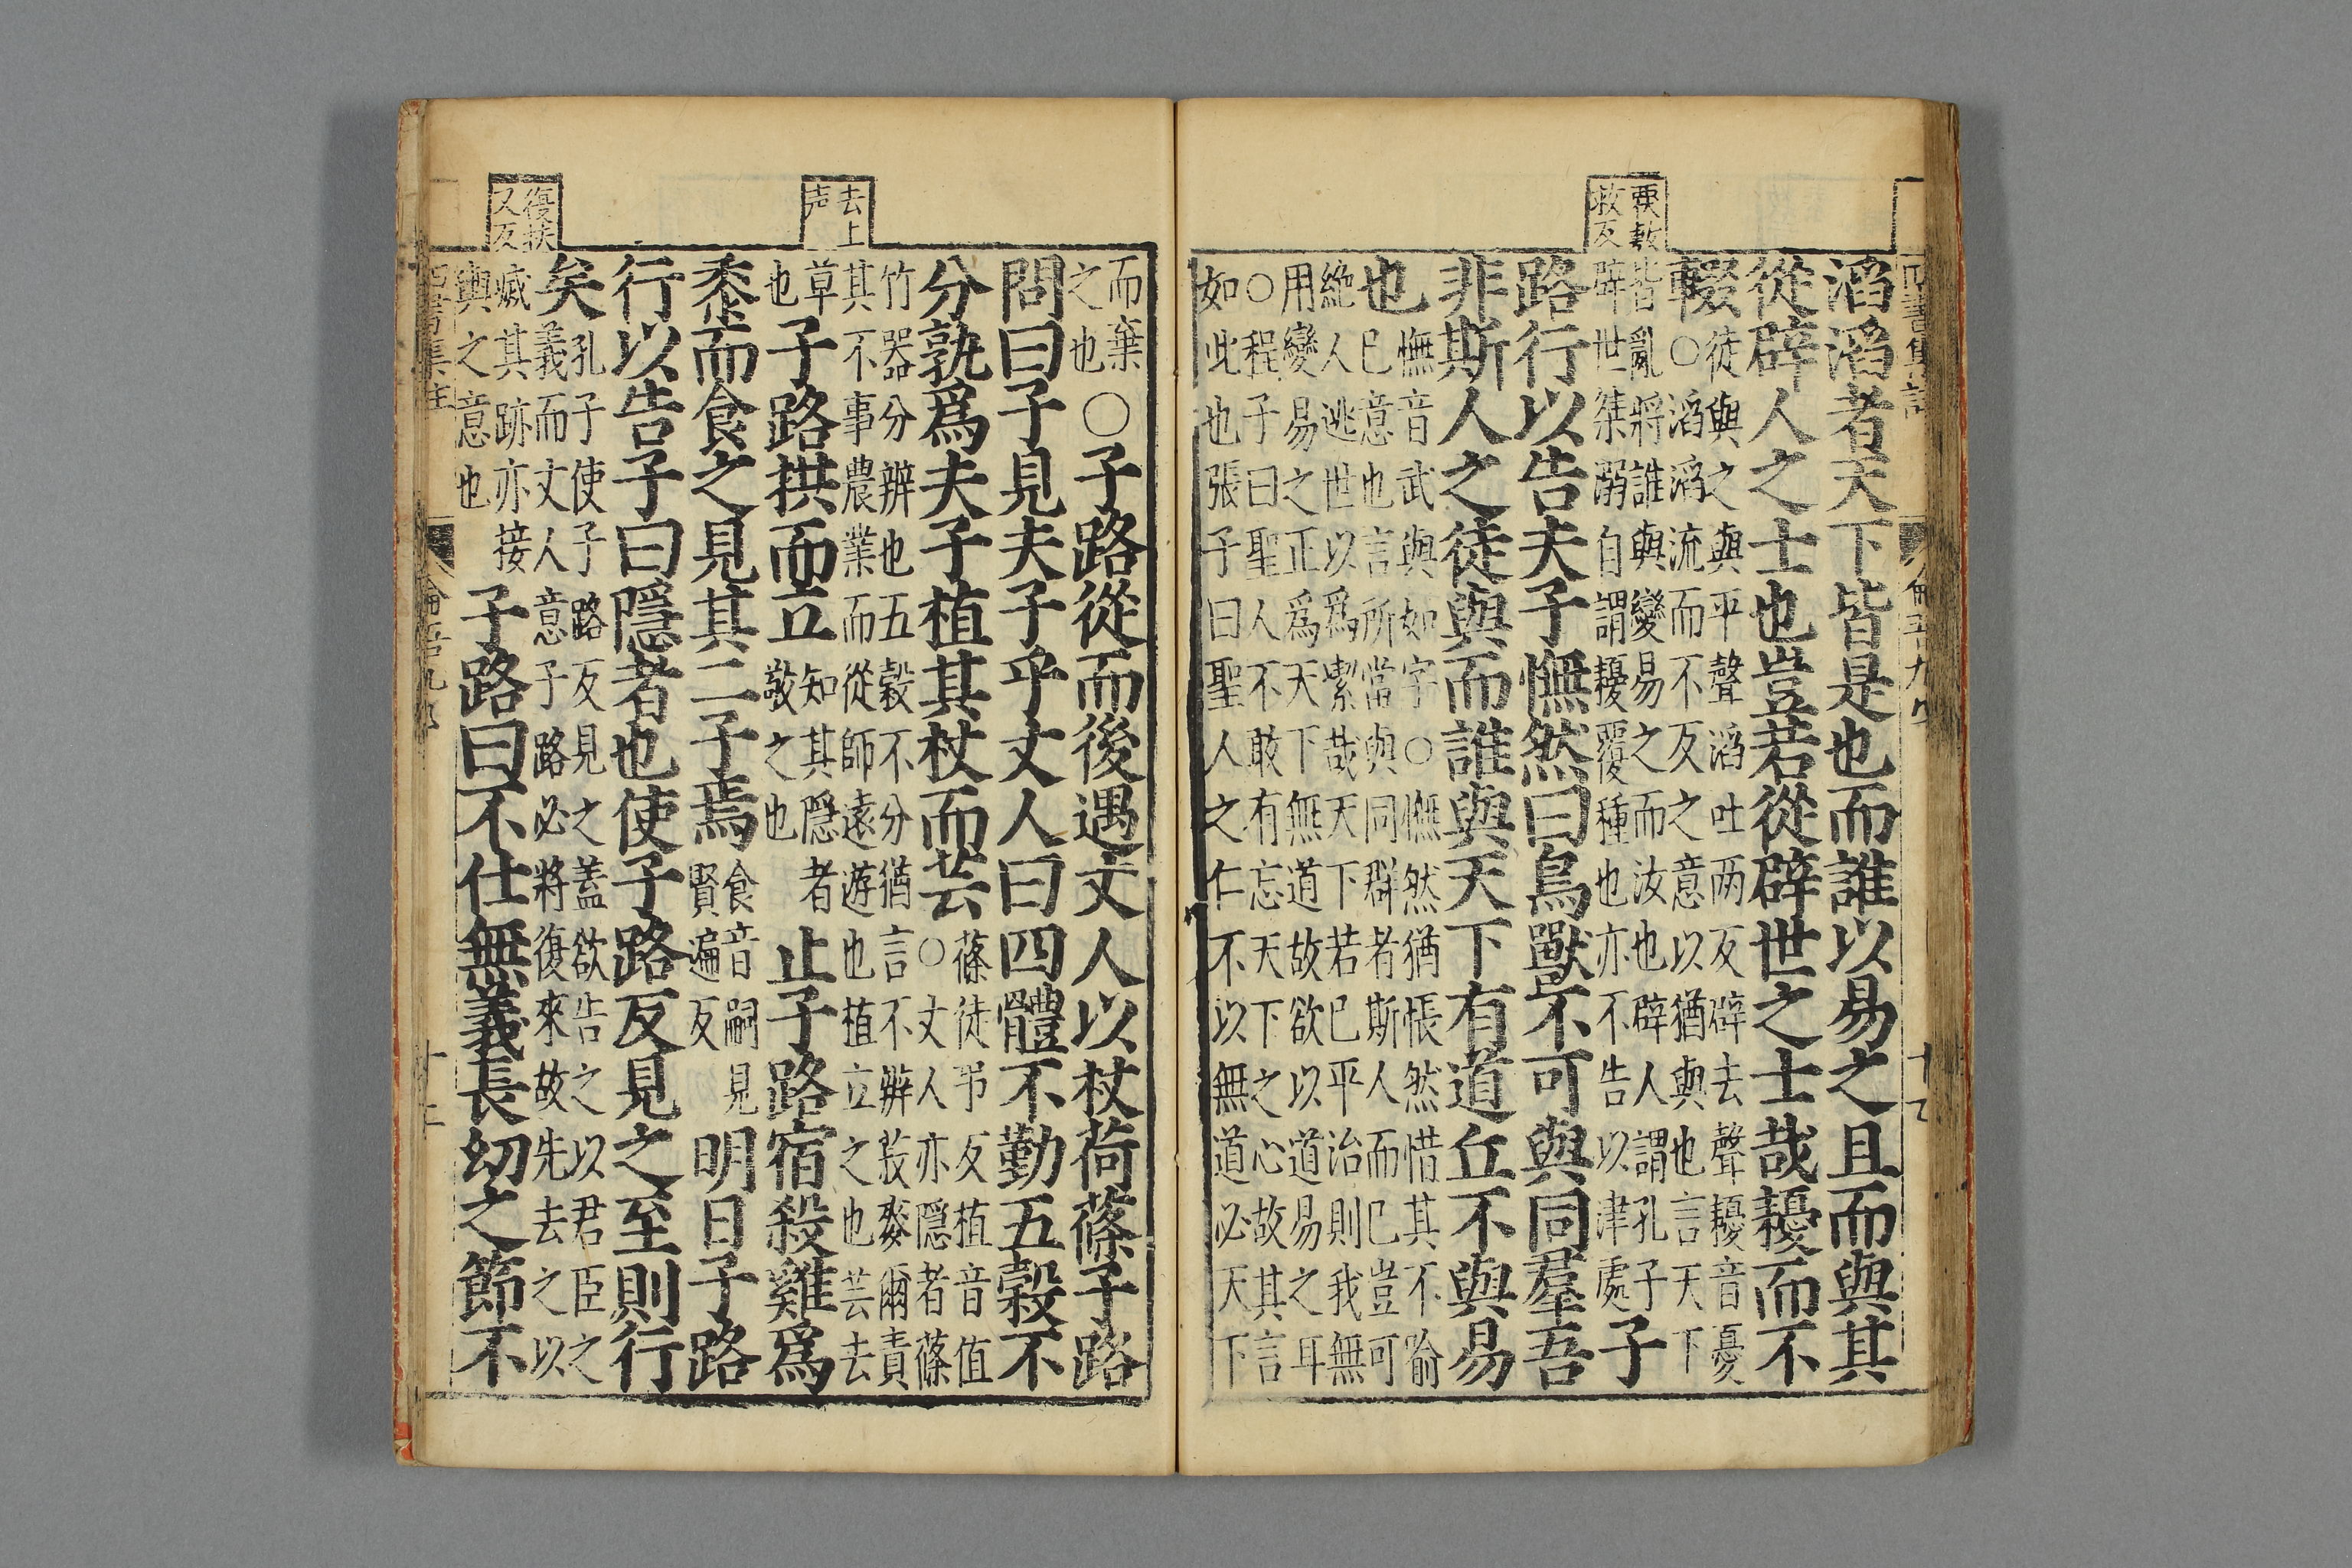 覆敷
救反
滔滔者天下皆是也而誰以易之且而與其
從辟人之士也豈若從辟世之士哉耰而不
輟
徒與之與平聲滔吐两反辟去聲耰音憂
○滔滔流而不反之意以猶與也言天下
皆亂將誰與變易之而汝也辟人謂孔子
辟世桀溺自謂耰覆種也亦不告以津處
子
路行以告夫子憮然曰鳥獸不可與同羣吾
非斯人之徒與而誰與天下有道丘不與易
也
憮音武與如字○憮然猶悵然惜其不喻
已意也言所當與同群者斯人而已豈可
絶人逃世以爲潔哉天下若已平治則我無
用變易之正爲天下無道故欲以道易之耳
○程子曰聖人不敢有忘天下之心故其言
如此也張子曰聖人之仁不以無道必天下
去上
声
復扶
又反
而棄
之也
○子路從而後遇丈人以杖荷蓧子路
問曰子見夫子乎丈人曰四體不勤五穀不
分孰爲夫子植其杖而芸
蓧徒弔反植音值
○丈人亦隱者蓧
竹器分辨也五穀不分猶言不辨菽麥爾責
其不事農業而從師遠遊也植立之也芸去
草
也
子路拱而立
知其隱者
敬之也
止子路宿殺雞爲
黍而食之見其二子焉
食音嗣見
賢遍反
明日子路
行以告子曰隱者也使子路反見之至則行
矣
孔子使子路反見之蓋欲告之以君臣之
義而丈人意子路必將復來故先去之以
滅其跡亦接
輿之意也
子路曰不仕無義長幼之節不